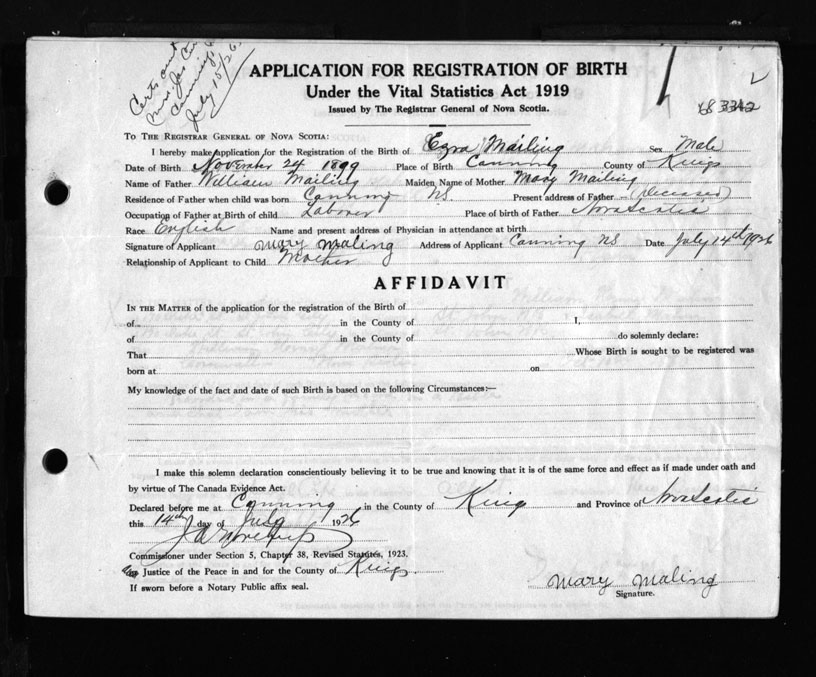 Certs out
Mrs. Jas
Canning
July 15/26
APPLICATION FOR REGISTRATION OF BIRTH
Under the Vital Statistics Act 1919
Issued by The Registrar General of Nova Scotia.
3342
TO THE REGISTRAR GENERAL OF NOVA SCOTIA:
I hereby make application for the Registration of the Birth of Ezra Mailing Sex Male
Date of Birth November 24 1899 Place of Birth Canning County of Kings
Name of Father William Mailing Maiden Name of Mother Mary Mailing
Residence of Father when child was born Canning NS. Present address of Father (deceased)
Occupation of Father at Birth of child Laborer Place of birth of Father Nova Scotia
Race English Name and present address of Physician in attendance at birth
Signature of Applicant Mary Maling Address of Applicant Canning NS Date July 14th 1926
Relationship of Applicant to Child Mother
AFFIDAVIT
IN THE MATTER of the application for the registration of the Birth of
of in the County of I,
of in the County of do solemnly declare:
That Whose Birth is sought to be registered was
born at on
My knowledge of the fact and date of such Birth is based on the following Circumstances:—
I make this solemn declaration conscientiously believing it to be true and knowing that it is of the same force and effect as if made under oath and
by virtue of The Canada Evidence Act.
Declared before me at Canning in the County of King and Province of Nova Scotia
this 14th day of July 1926
Commissioner under Section 5, Chapter 38, Revised Statutes, 1923.
Justice of the Peace in and for the County of Kings.
If sworn before a Notary Public affix seal.
Mary Maling
Signature.